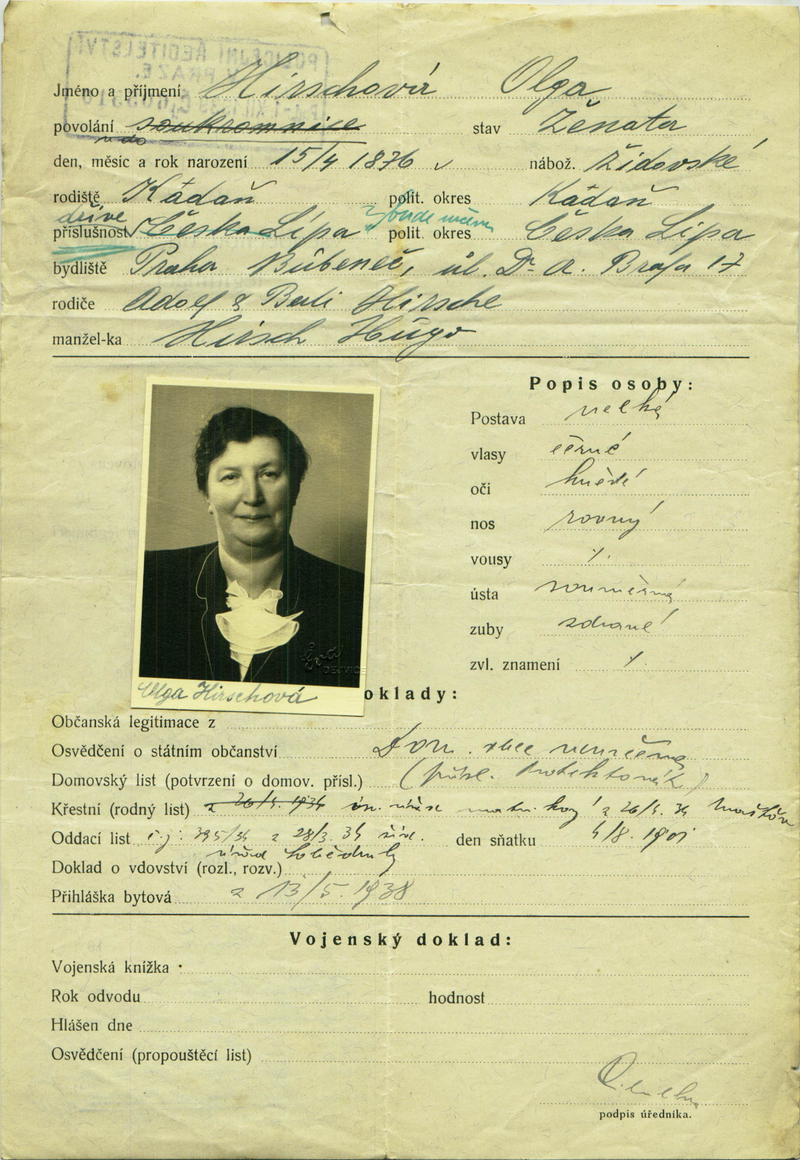 POLICEJNÍ ŘEDITELSTVÍ
PRAZE.
Jméno a příjmení Hirschová Olga
povolání soukromnice stav Ženatá
den, měsíc a rok narození 15/4 1876 nábož. židovské
rodiště Kádaň polit. okres Kádaň
dříve
příslušnost Česka Lípa polit. okres Česka Lípa
bydliště Praha Bubeneč, úl. Dr. A. Brafa 17
rodiče Adolf & Berti Hirsche
manžel-ka Hirsch Hugo
Popis osoby:
Postava velká
vlasy černé
oči hnědé
nos rovný
vousy /.
ústa souměrná
zuby zdravé
zvl. znamení /.
Olga Hirschová
oklady:
Občanská legitimace z
Osvědčení o státním občanství Dom. obec neurčena
Domovský list (potvrzení o domov. přísl.)
Křestní (rodný list) z 26/4. 1934 z 26/4. 34
Oddací list 395/34 z 28/3. 34 den sňatku 4/8. 1901
Doklad o vdovství (rozl., rozv.)
Přihláška bytová z 13/5. 1938
Vojenský doklad:
Vojenská knížka
Rok odvodu hodnost
Hlášen dne
Osvědčení (propouštěcí list)
podpis úředníka.